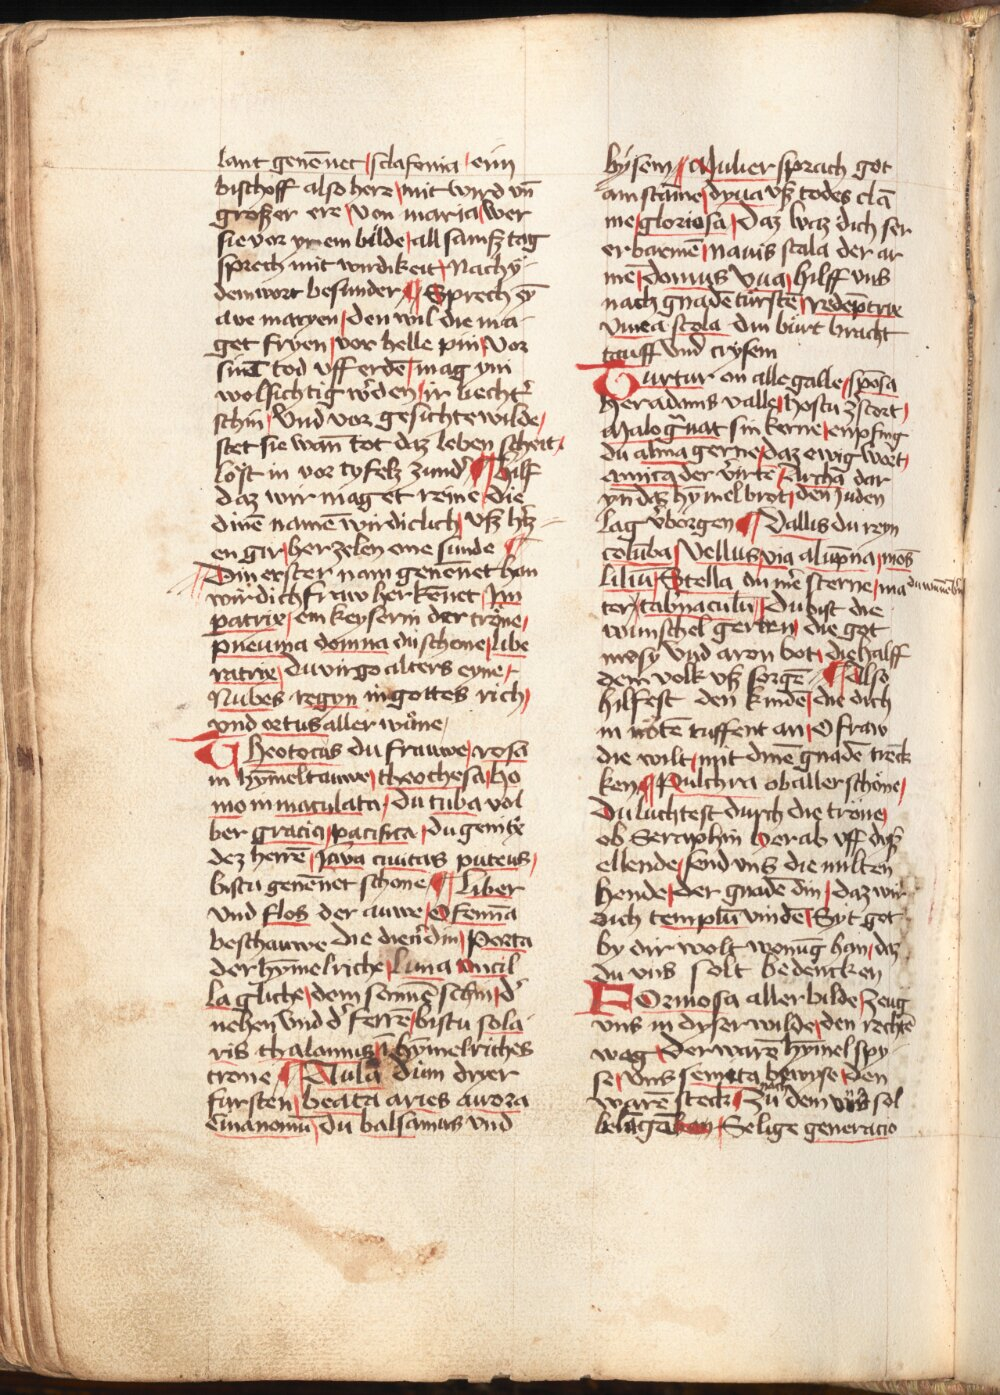 lant genēnet sclafonia ein
bischoff also here mit wird vn̄
groſzer ere Von maria wer
sie vor yrem bilde all samſztag
sprech mit wirdikeit Nach ÿ
dem wort besunder Sprech ÿ
ave maryen den wil die ma
get fryen vor helle pin Vor
sim tod vff erdē mag yni
wolsichtig w̄den ir liecht
schin Vnd vor gesichte wilde
stet sie wan̄ tot daz leben scheit
löst in vor tyfelz zund Hilff
daz wir maget reine die
dinē namē wirdiclich vſz h̄tz
en gir her zelen one sunde
Din erster nam genēnet han
wir dich fraw herkēnet Im
patrix ein keyserin der tröne
pneuma domna du schone libe
ratrix du virgo alters eyne
Nubes regyn in gottes rich
vnd ortus aller wūne
Theotocus du frauwe rosa
in hȳmeltauwe theochesa ho
mo inmaculata du tuba vol
ber gracia pacifica du genitx
dez herrē Java ciuitas puteus
bistu genēnet schone Liber
vnd flos der auwe O femīa
beschauwe die dienr̄ din Porta
der hȳmelriche luna ancil
la gliche dem sonnē schin d
nehen vnd d ferrē bistu sola
ris thalamus ī hȳmelriches
trone Aula dium dryer
fursten beata aries aurora
du balsamus vnd
bysem Mulier sprach got
am stāme dyua vſz todes clā
me gloriosa daz waz dich ser
erbarmē nauis scala der ar
mē domus vua hilff vns
nach gnade türstē redēptrix
vinea stola din bürt bracht
tauff vnd crysem
Turtur on alle galle spōsa
her adams valle hostu zstort
Malogᷓnat sin kerne empfing
du alma gerne daz ewig wort
amica der virte Archa dar
yn daz hymelbrot den Juden
lag v̄borgen Vallis du reyn
colūba Vellus via alūpna mōs
liliū Stella du mer̄ sterne ma
ter tabn̄aculū Du bist die
wunschel gerten die got
mosy vnd aron bot die halff
dem volk vſz sorgē Also
hilfest den kindē die dich
in nötē ruffent an O fraw
die wilt mit dinē gnadē trēck
ken Pulchra ob aller schöne
Du luchtest durch die tröne
ob Seraphin Herab vff diſz
ellende send vns die milten
hende der gnade din daz wir
dich templū vindē Syt got
by dir wolt wonūg han daz
du vns solt bedencken
Formosa aller bilde Zeug
vns in dyser wilde den rechtē
wag der warē hȳmel spy
se vns semita bewyse den
warē steck Zu nach dem vns sol
belāgen Selige generacio